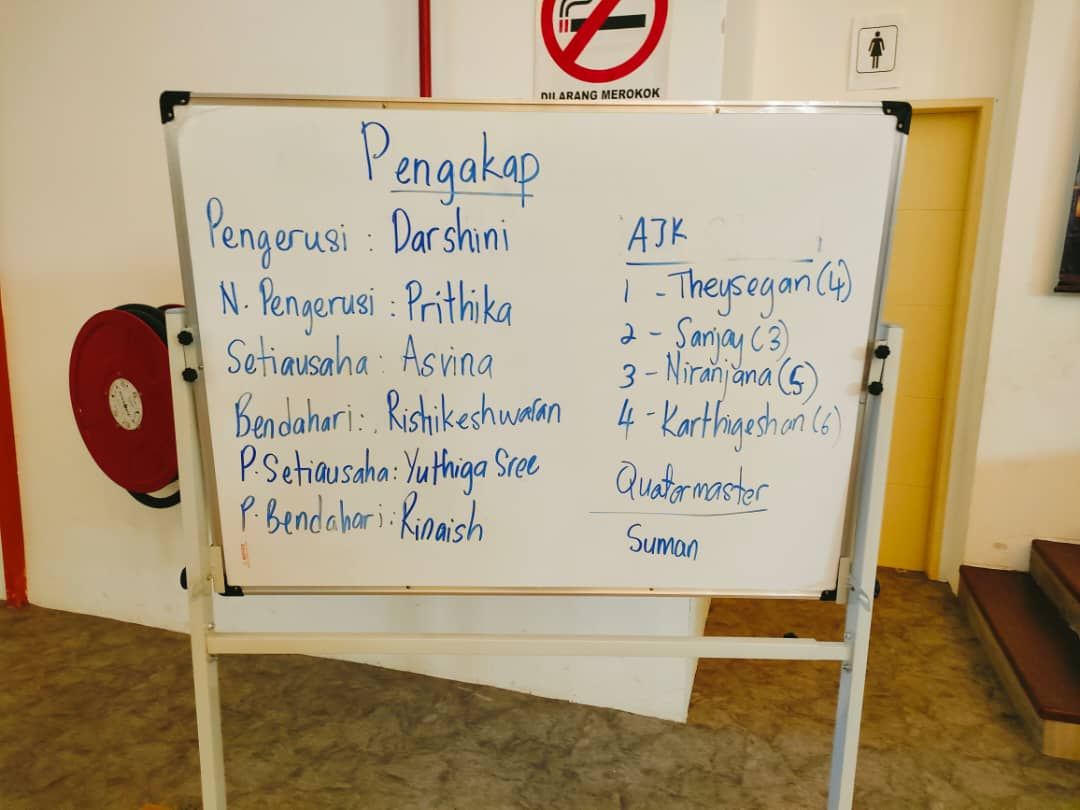 DILARANG MEROKOK
Pengakap
Pengerusi : Darshini
N. Pengerusi : Prithika
Setiausaha : Asvina
Bendahari : Rishikeshwaran
P. Setiausaha : Yuthiga Sree
P. Bendahari : Rinaish
AJK
1 - Theysegan (4)
2 - Sanjay (3)
3 - Niranjana (5)
4 - Karthigeshan (6)
Quatermaster
Suman